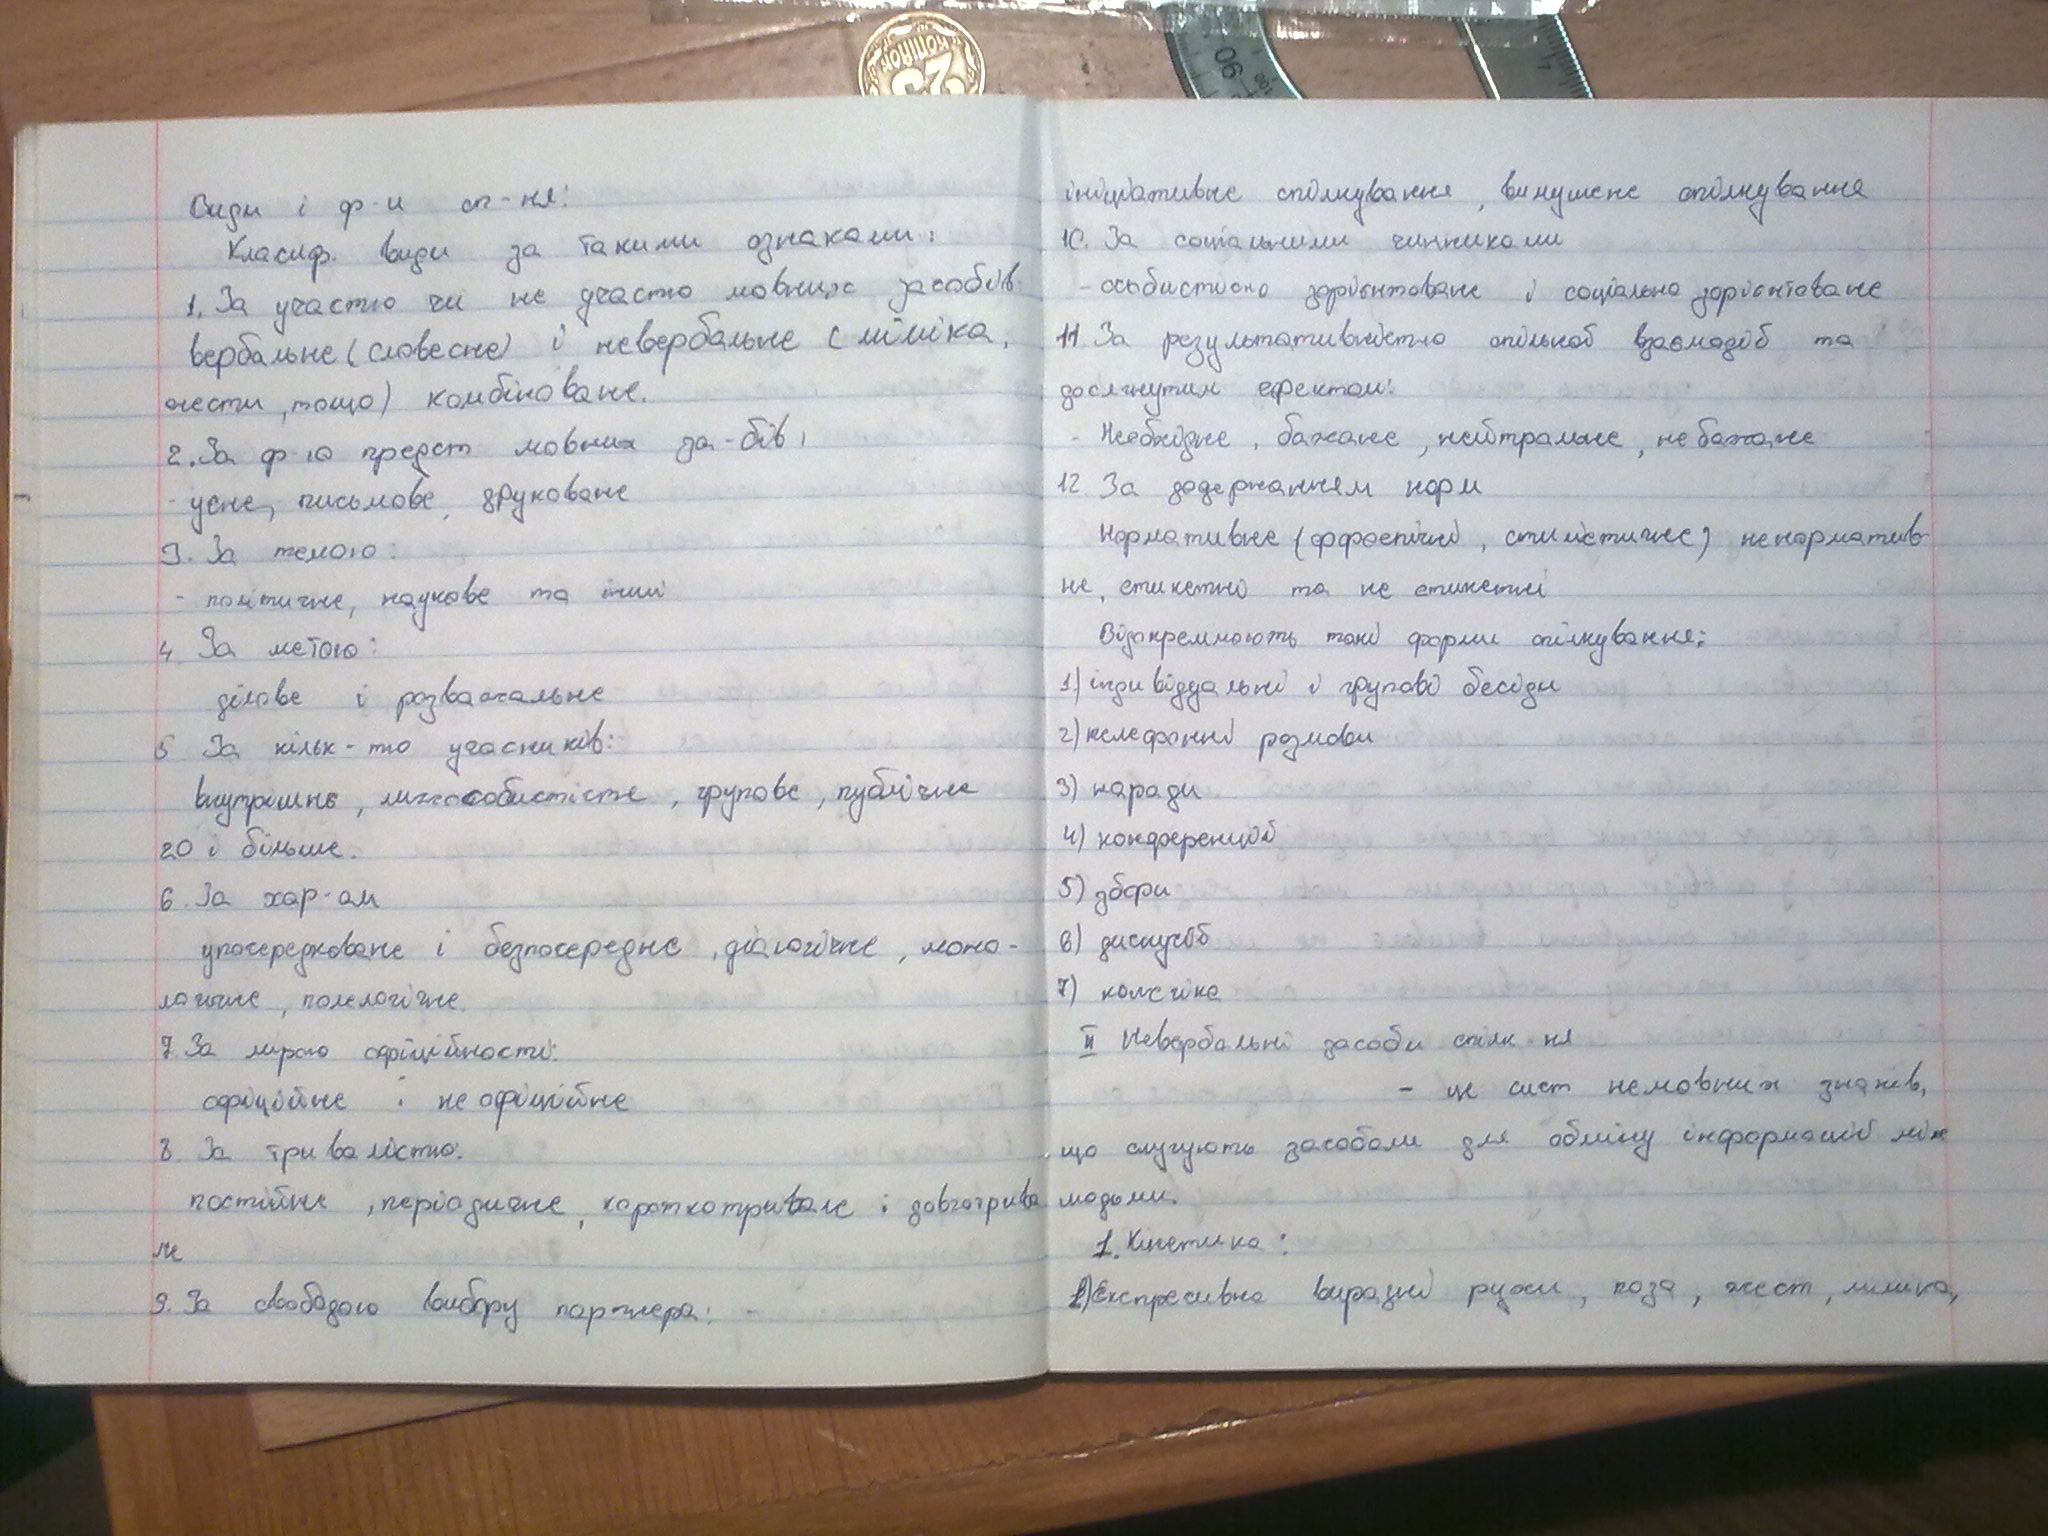 25
КОПІЙОК
90
100
Види і ф-и сп-ня:
Класиф. види за такими ознаками:
1. За участю чи не участю мовних засобів.
вербальне (словесне) і невербальне (міміка,
жести, тощо) комбіноване.
2. За ф-ю предст мовних за-бів,
- усне, письмове, друковане
3. За темою:
- політичне, наукове та інші
4. За метою:
ділове і розважальне
5 За кільк-тю учасників:
внутрішнє, міжособистісне, групове, публічне
20 і більше.
6. За хар-ом
упосередковане і безпосереднє, діалогічне, моно-
логічне, полелогічне.
7. За мірою офіційности:
офіційне і не офіційне
8. За тривалістю.
постійне, періодичне, короткотривале і довготрива
ле
9. За свободою вибору партнера: -
ініціативне спілкування, вимушене спілкування
10. За соціальними чинниками
- особистісно зорієнтоване і соціально зорієнтоване
11 За результативністю спільної взаємодії та
досягнутим ефектом:
- Необхідне, бажане, нейтральне, не бажане
12 За додержанням норм
Нормативне (орфоепічні, стилістичне) ненорматив-
не, етикетні та не етикетні
Відокремлюють такі форми спілкування:
1) індивідуальні і групові бесіди
2) телефонні розмови
3) наради
4) конференції
5) збори
6) дискусії
7)
II Невербальні засоби спілк ня
- це сист немовних знаків,
що слугують засобами для обміну інформації між
людьми.
1. Кінетика:
1) Експресивно виразні рухи, поза, жест, міміка,